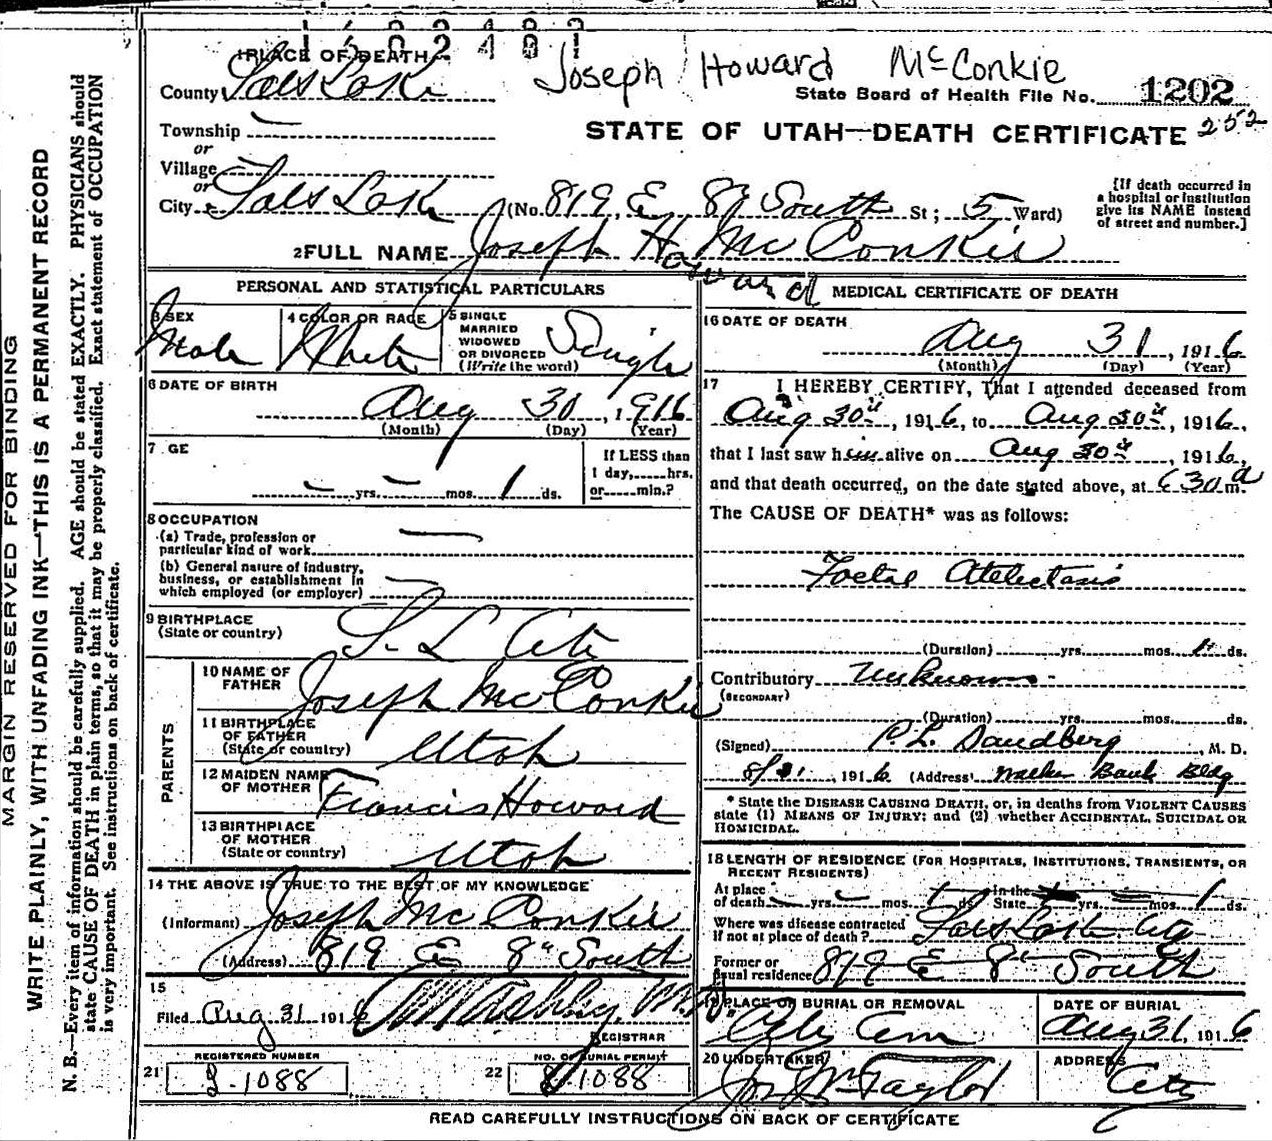 1602481
1 PLACE OF DEATH
Joseph Howard McConkie
County Salt Lake
State Board of Health File No. 1202
252
Township —
or
STATE OF UTAH—DEATH CERTIFICATE
Village —
or
City Salt Lake (No. 819 E 8th South St; 5 Ward)
[If death occurred in
a hospital or institution
give its NAME instead
of street and number.]
2 FULL NAME Joseph H. McConkie
Howard
PERSONAL AND STATISTICAL PARTICULARS
3 SEX
Male
4 COLOR OR RACE
White
5 SINGLE
MARRIED
WIDOWED
OR DIVORCED
(Write the word)
Single
6 DATE OF BIRTH
Aug 30, 1916
(Month) (Day) (Year)
7 GE
— yrs. — mos. 1 ds.
If LESS than
1 day,......hrs.
or......min.?
8 OCCUPATION
(a) Trade, profession or
particular kind of work —
(b) General nature of industry,
business, or establishment in
which employed (or employer) —
9 BIRTHPLACE
(State or country)
S. L. City
PARENTS
10 NAME OF
FATHER
Joseph McConkie
11 BIRTHPLACE
OF FATHER
(State or country)
Utah
12 MAIDEN NAME
OF MOTHER
Francis Howard
13 BIRTHPLACE
OF MOTHER
(State or country)
Utah
14 THE ABOVE IS TRUE TO THE BEST OF MY KNOWLEDGE
(Informant) Joseph McConkie
(Address) 819 E 8" South
15
Filed Aug 31 1916
REGISTRAR
REGISTERED NUMBER
21 1088
NO. OF BURIAL PERMIT
22 1088
MEDICAL CERTIFICATE OF DEATH
16 DATE OF DEATH
Aug 31, 1916
(Month) (Day) (Year)
17 I HEREBY CERTIFY, That I attended deceased from
Aug 30th, 1916, to Aug 30th, 1916,
that I last saw him alive on Aug 30th, 1916,
and that death occurred, on the date stated above, at 630 a m.
The CAUSE OF DEATH* was as follows:
Foetal Atelectasis
(Duration) yrs. mos. 1 ds.
Contributory Unknown
(SECONDARY)
(Duration) yrs. mos. ds.
(Signed) P. L. Sandberg, M. D.
8/31, 1916 (Address) Walker Bank Bldg
* State the DISEASE CAUSING DEATH, or, in deaths from VIOLENT CAUSES
state (1) MEANS OF INJURY; and (2) whether ACCIDENTAL, SUICIDAL OR
HOMICIDAL.
18 LENGTH OF RESIDENCE (FOR HOSPITALS, INSTITUTIONS, TRANSIENTS, OR
RECENT RESIDENTS)
At place
of death — yrs — mos. 1 ds.
In the
State — yrs — mos. 1 ds.
Where was disease contracted
if not at place of death? Salt Lake City
Former or
usual residence 819 E 8" South
19 PLACE OF BURIAL OR REMOVAL
City Cem
DATE OF BURIAL
Aug 31, 1916
20 UNDERTAKER
Jos Wm Taylor
ADDRESS
City
READ CAREFULLY INSTRUCTIONS ON BACK OF CERTIFICATE
MARGIN RESERVED FOR BINDING
WRITE PLAINLY, WITH UNFADING INK—THIS IS A PERMANENT RECORD
N. B.—Every item of information should be carefully supplied. AGE should be stated EXACTLY. PHYSICIANS should
state CAUSE OF DEATH in plain terms, so that it may be properly classified. Exact statement of OCCUPATION
is very important. See instructions on back of certificate.